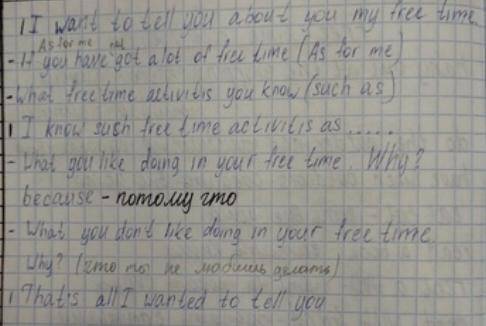 1 I want to tell you about you my free time
As for me not
- If you have got a lot of free time (As for me)
- What free time activitis you know (such as)
1 I know such free time activitis as .....
- What you like doing in your free time. Why?
because - потому что
- What you don't like doing in your free time.
Why? (что ты не любишь делать)
1 That's all I wanted to tell you